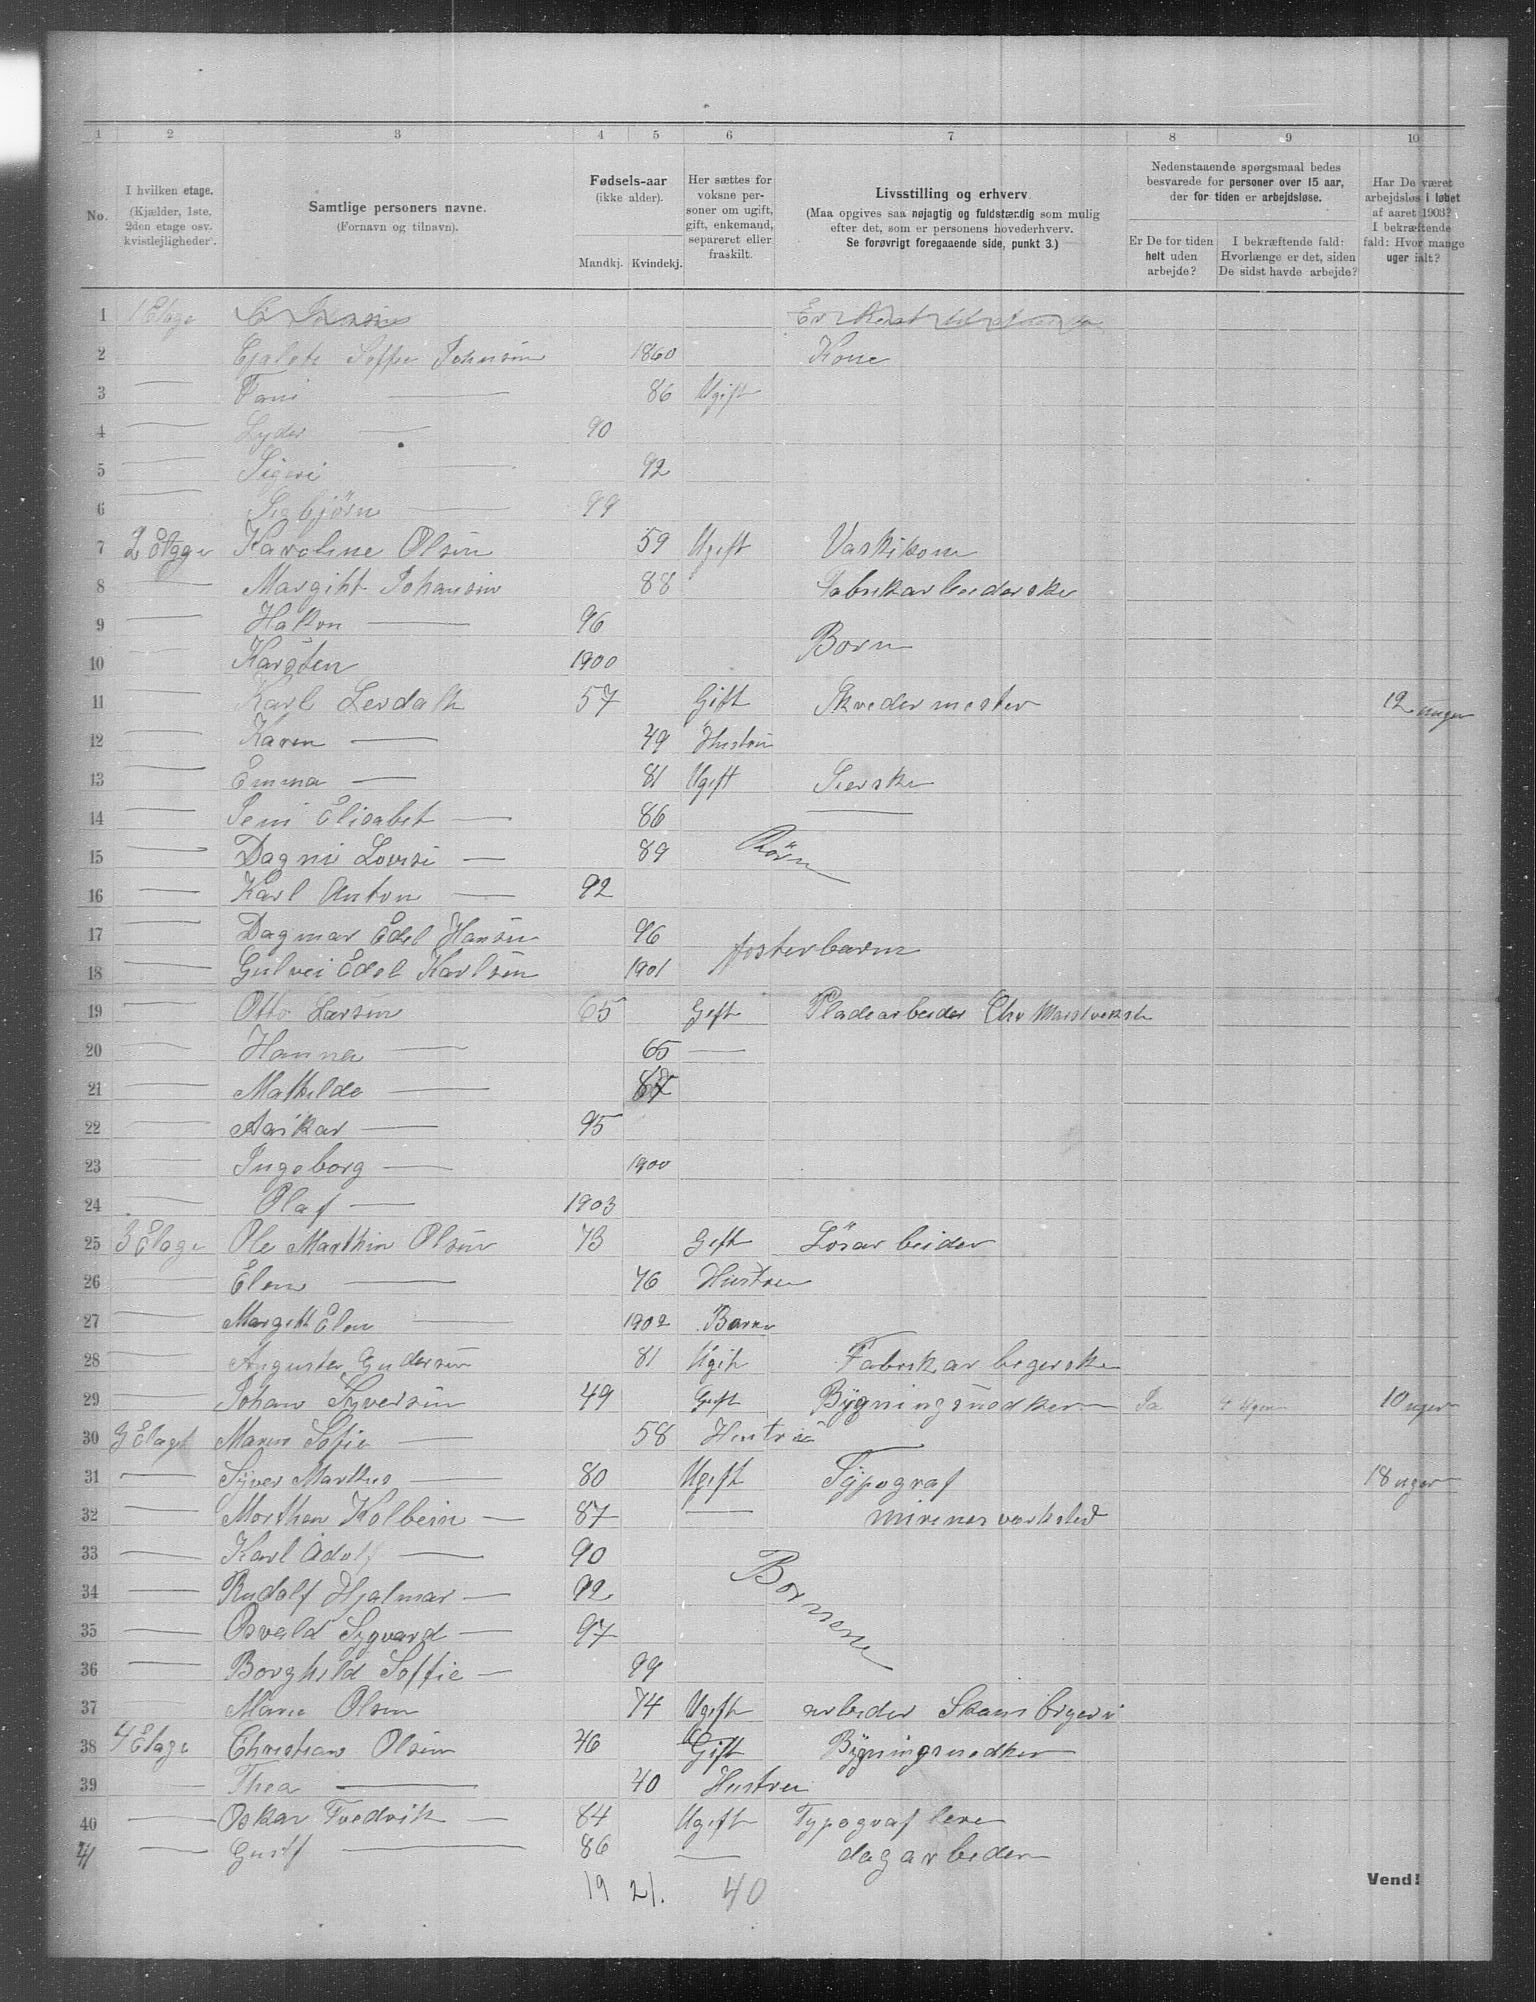 1 2 3 4 5 6 7 8 9 10
No. I hvilken etage. (Kjælder, 1ste, 2den etage osv. kvistlejligheder). Samtlige personers navne. (Fornavn og tilnavn). Fødsels-aar (ikke alder). Mandkj. Kvindekj. Her sættes for voksne personer om ugift, gift, enkemand, separeret eller fraskilt. Livsstilling og erhverv. (Maa opgives saa nøjagtig og fuldstændig som mulig efter det, som er personens hovederhverv. Se forøvrigt foregaaende side, punkt 3.) Nedenstaaende spørgsmaal bedes besvarede for personer over 15 aar, der for tiden er arbejdsløse. Er De for tiden helt uden arbejde? I bekræftende fald: Hvorlænge er det, siden De sidst havde arbejde? Har De været arbejdsløs i løbet af aaret 1903? I bekræftende fald: Hvor mange uger ialt?
1 1 Etage
2 Soffie Johnsen 1860 Kone
3 Fani 86 Ugift
4 Lyder 90
5 Sigeri 92
6 Sigbjörn 99
7 2 Etage Karoline Olsen 59 Ugift Vaskikone
8 Margitt Johansen 88 Fabrikarbeiderske
9 Hakon 96
10 Karsten 1900 Born
11 Karl Lerdalh 57 Gift Skredermester 12 uger
12 Karen 49 Hustru
13 Emma 81 Ugift Sierske
14 Jeni Elisabet 86
15 Dagni Lovise 89 Börn
16 Karl Anton 92
17 Dagmar Edel Hansen 96
18 Gulvei Edel Karlsen 1901 fosterbarn
19 Otto Larsen 65 Gift Pladearbeider
20 Hanna 65
21 Mathilde 87
22 Aaskar 95
23 Ingeborg 1900
24 Olaf 1903
25 3 Etage Ole Marthin Olsen 73 Gift Lösarbeider
26 Elen 76 Hustru
27 Margith Elen 1902 Barn
28 Auguste Gudersen 81 Ugift Fabrikarbegerske
29 Johan Syversen 49 Gift Bygningsnedker Ja 4 Uger 10 uger
30 3 Etage Maren Sofie 58 Hustru
31 Syver Markus 80 Ugift Typograf 18 uger
32 Morthen Kolbein 87 mirenes verksted
33 Karl Adolf 90
34 Rudolf Hjalmar 92 Bornene
35 Osvald Sygvard 97
36 Borghild Soffie 99
37 Marie Olsen 74 Ugift arbeder
38 4 Etage Christian Olsen 46 Gift Bygningsnedker
39 Thea 40 Hustru
40 Oskar Fredrik 84 Ugift Typograf lere
41 Gustf 86 dagarbeder
19 21. 40
Vend!